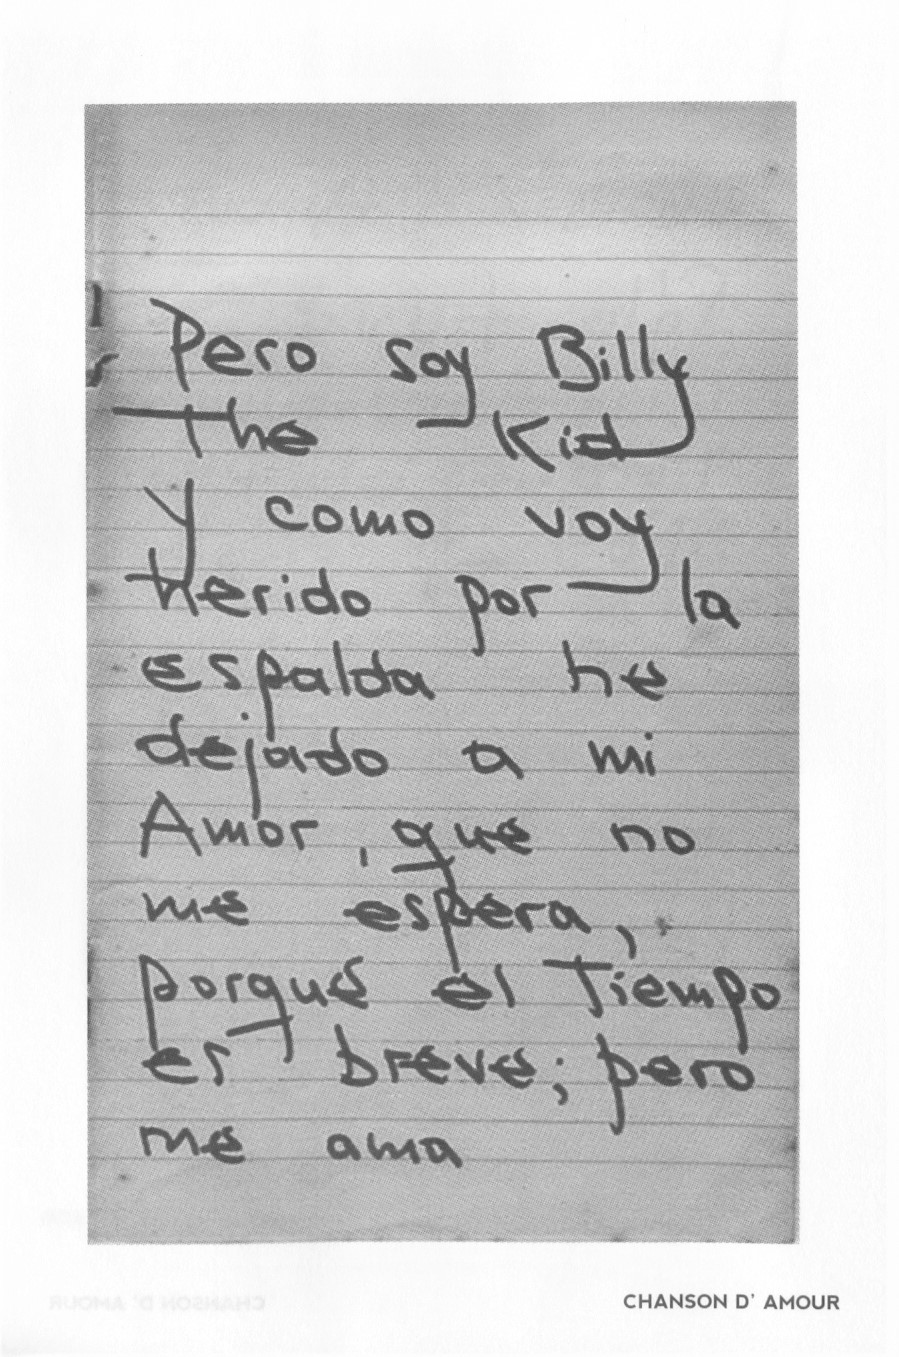 Pero soy Billy
The Kid
y como voy
herido por la
espalda he
dejado a mi
Amor, que no
me espera,
porque el Tiempo
es breve; pero
me ama
CHANSON D' AMOUR